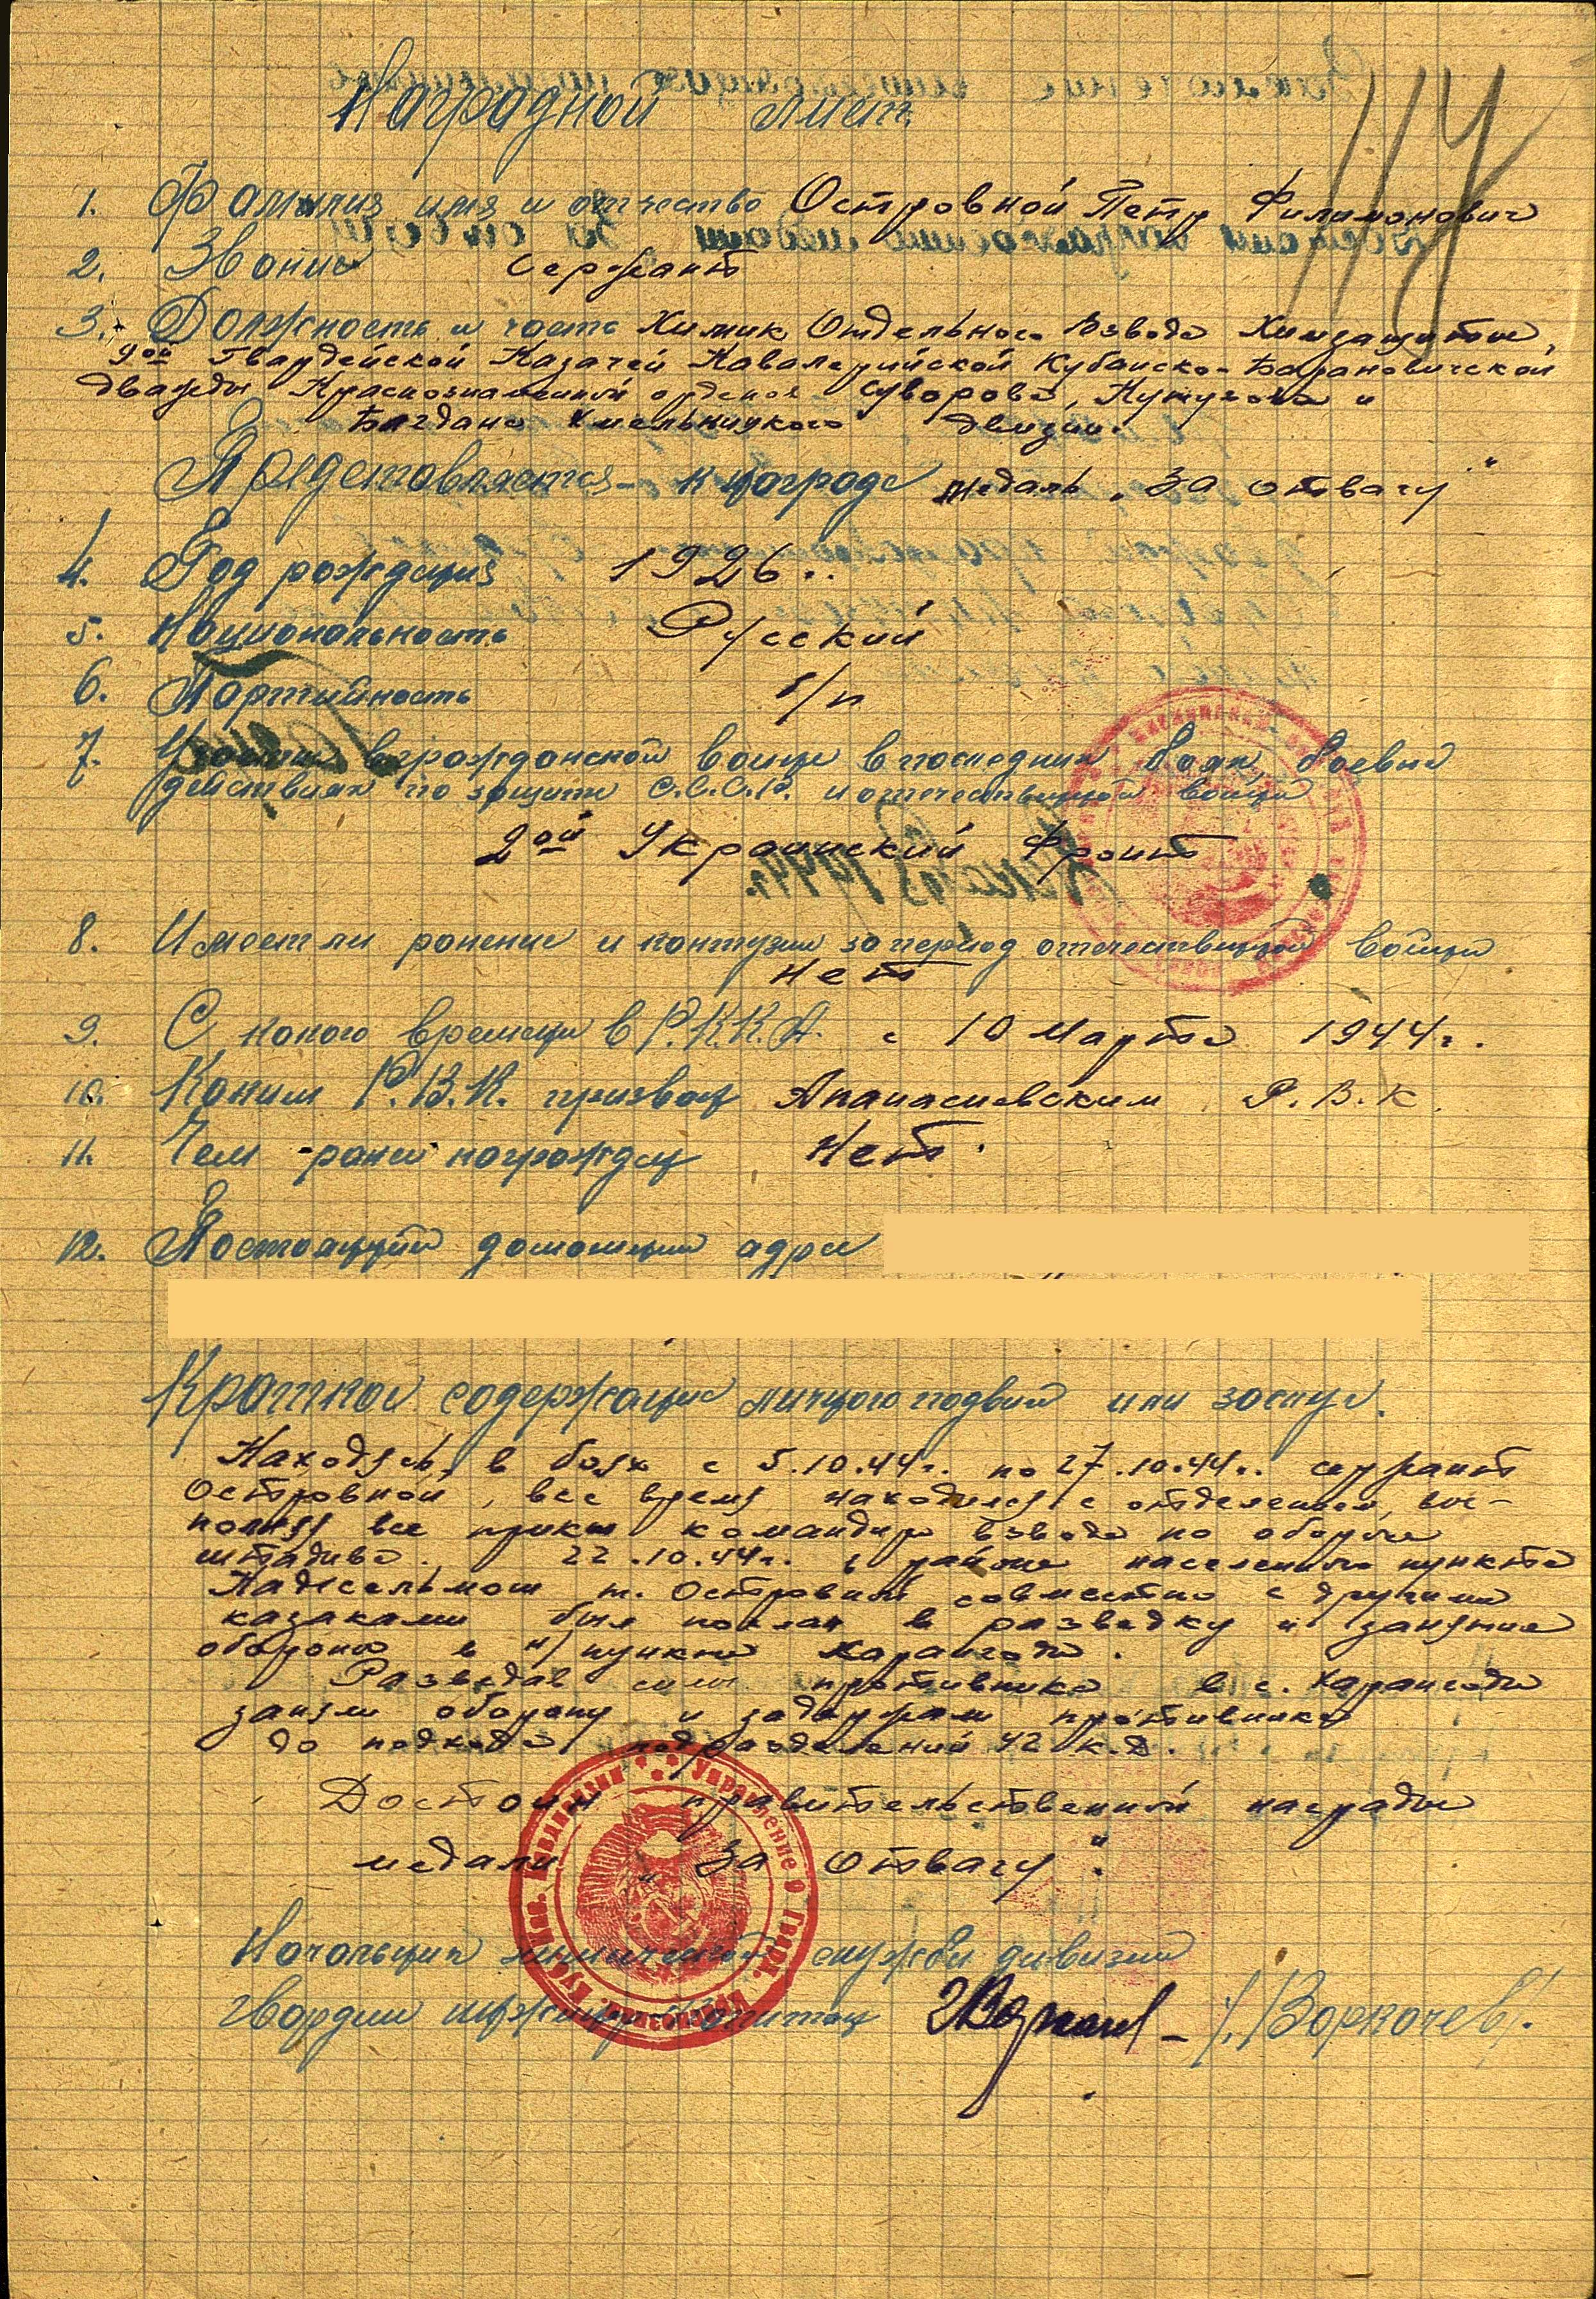 Наградной лист
117
1. Фамилия имя и отчество Островной Петр Филимонович
2. Звание Сержант
3. Должность и часть Химик Отдельного Взвода Химзащиты,
9ой Гвардейской Казачей Кавалерийской Кубанско-Барановической
дважды Краснознаменной орденов Суворова, Кутузова и
Богдана Хмельницкого дивизии.
Представляется к награде медаль „За отвагу"
4. Год рождения 1926г.
5. Национальность Русский
6. Партийность б/п
7. Участие в гражданской войне в последних боях боевых
действиях по защите С.С.С.Р. и отечественной войны
2ой Украинский Фронт
8. Имеет ли ранение и контузии за период отечественной войны
Нет
9. С какого времени в Р.К.К.А. с 10 Марта 1944г.
10. Каким Р.В.К. призван Апанасиевским Р.В.К.
11. Чем ранее награжден Нет.
12. Постоянный домашний адрес
Краткое содержание личного подвига или заслуг.
Находясь в боях с 5.10.44г. по 27.10.44г. сержант
Островной, все время находился с отделением, вы-
полняя все приказы командира взвода по обороне
штадива. 22.10.44г. в районе населенного пункта
Надьсельмош т. Островной совместно с другими
казаками был послан в разведку и занятие
обороны в н/пункте Харангода.
Разведав силы противника в с. Харангода
заняли оборону и задержали противника
до подхода подразделений 42 к.д.
Достоин правительственной награды
медали „За Отвагу".
Начальник химической службы дивизии
гвардии инженер капитан /Воркачев/.